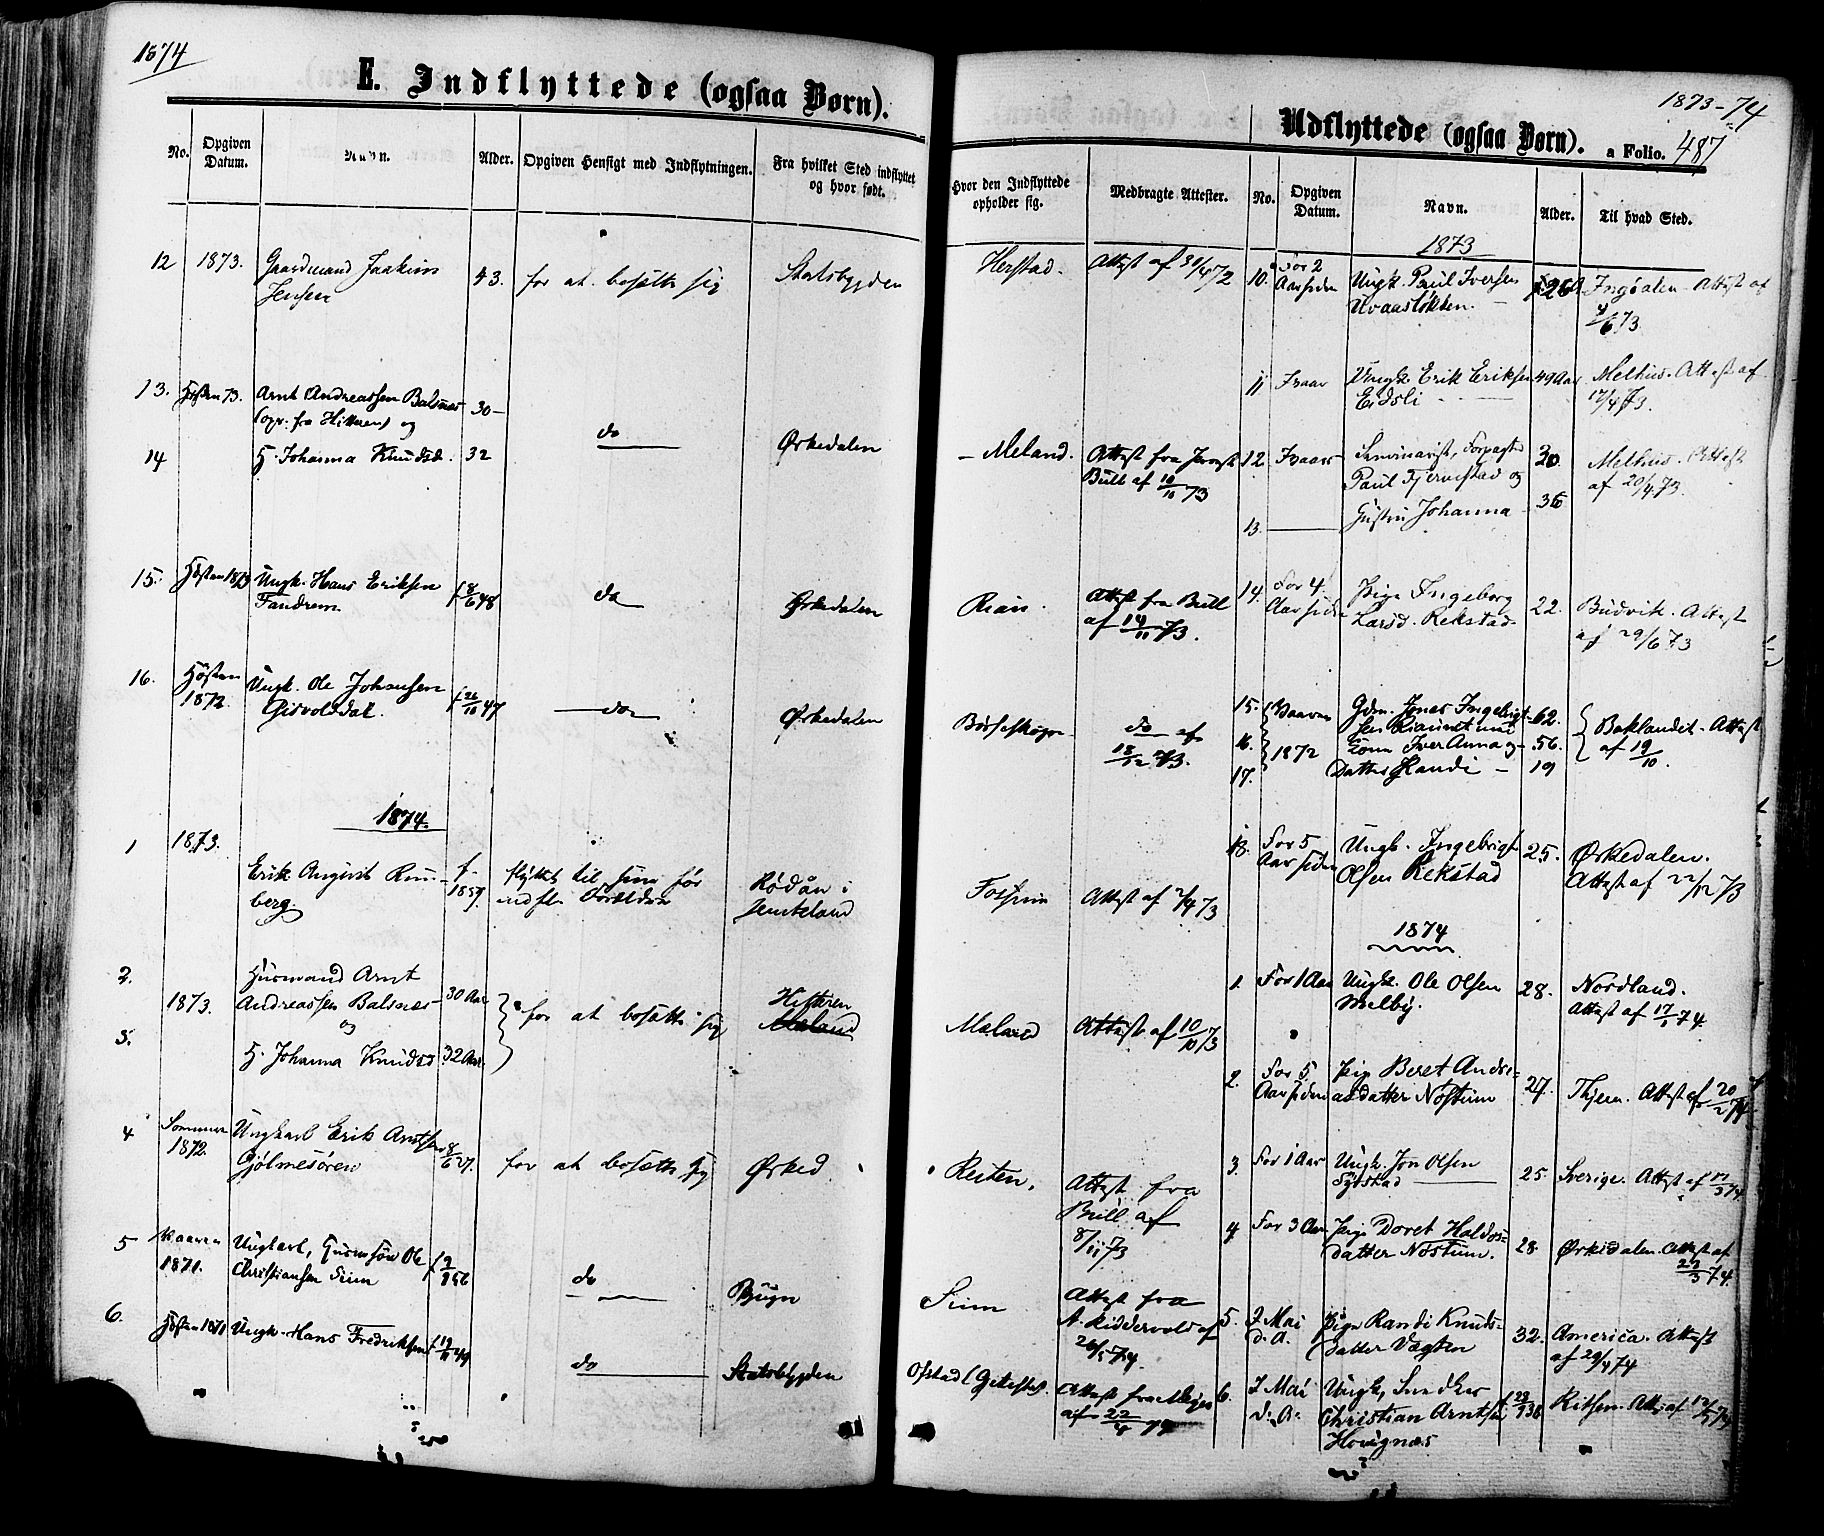 1874
E. Indflyttede (ogsaa Børn).
No. Opgiven Datum. Navn. Alder. Opgiven Hensigt med Indflytningen. Fra hvilket Sted indflyttet og hvor født.
12 1873. Gaardmand Joakim 43. for at bosætte sig Statsbygden
Jensen
13. Høsten 73. Arnt Andreassen Balsnæs 30 —
(opr. fra Hitteren) og do Ørkedalen
14 H. Johanna Knudsd. 32
15. Høsten 1873 Ungk. Hans Eriksen f 8/6 48 do Ørkedalen
Fandrem
16. Høsten Ungk. Ole Johansen f 26/10 47 do Ørkedalen
1872. Gisvolddal.
1874.
1 1873. Erik August f. flyttet til sine før Rødån i
berg. 1859. indfl. Forældre Jemteland
2. Husmand Arnt
1873. Andreassen Balsnæs 30 Aar for at bosætte sig Hitteren
og Mæland
3. H. Johanna Knudsd 32 Aar
4 Sommer Ungkarl Erik Arntsen 8/6 27. for at bosætte sig Ørked.
1872. Gjølmesøren
5 Vaaren Ungkarl, Ole f 9/2 56 do Bjugn
1871. Christiansen Sum
6. Høsten 1871 Ungk. Hans Fredriksen f 19/11 49 do Statsbygden
1873-74
Udflyttede (ogsaa Børn). a Folio. 487
Hvor den Indflyttede opholder sig. Medbragte Attester. No. Opgiven Datum. Navn. Alder. Til hvad Sted.
1873
Herstad. Attest af 31/4 72 10. For 2 Ungk. Paul Iversen 26 Ingdalen - Attest af
Aar siden 4/6 73.
11 Ivaar Ungk. Erik Eriksen 49 Aar Melhus. Attest af
Eidsli 17/4 73.
— Meland. Attest fra 12. Ivaar Seminarist, Forpagter 30. Melhus. Attest
Bull af 10/10 73 Paul Fjermstad og af 20/4 73.
13. — Johanna 36
Rian. Attest fra Bull 14. For 4 Pige Ingeborg 22. Budvik. Attest
af 14/11 73. Aar siden Larsd. Rekstad af 29/6 73
Børseskogn do af 15. Vaaren Gdm. Jonas Ingebrigt- 62. Baklandet - Attest
18/12 73. 16. 1872 Anna og 56. af 19/10.
17. Datter Randi — 19
18. For 5 Ungk. Ingebrigt 25. Ørkedalen.
Aar siden Olsen Rekstad Attest af 22/12 73
Attest af 2/9 73
1874
1. For 1 Aar Ungk. Ole Olsen 28. Nordland.
Melby. Attest af 17/1 74.
Mæland Attest af 10/10 73
2. For 5 Pige Beret Andre- 27. Thjem. Attest af 20/2 74
Aar siden asdatter Nostum
Reiten. Attest fra 3. For 1 Aar Ungk. Jon Olsen 25. Sverige. Attest af 17/3 74
Bull af Sydstad
8/11 73 4 For 3 Aar Pige Doret Haldos- 28. Ørkedalen. Attest af
datter Nostum. 23/3 74.
Sum Attest fra
A. Riddervold af 5. I Mai Pige Randi Knuds- 32. America. Attest
20/5 74. d. A. datter Vægten af 29/4 74
Ofstad Attest fra 6. I Mai Ungk. f 23/9 38 Ritsen. Att. af 12/5 74
af 22/4 74 d. A. Christian Arntsen
Hovignæs